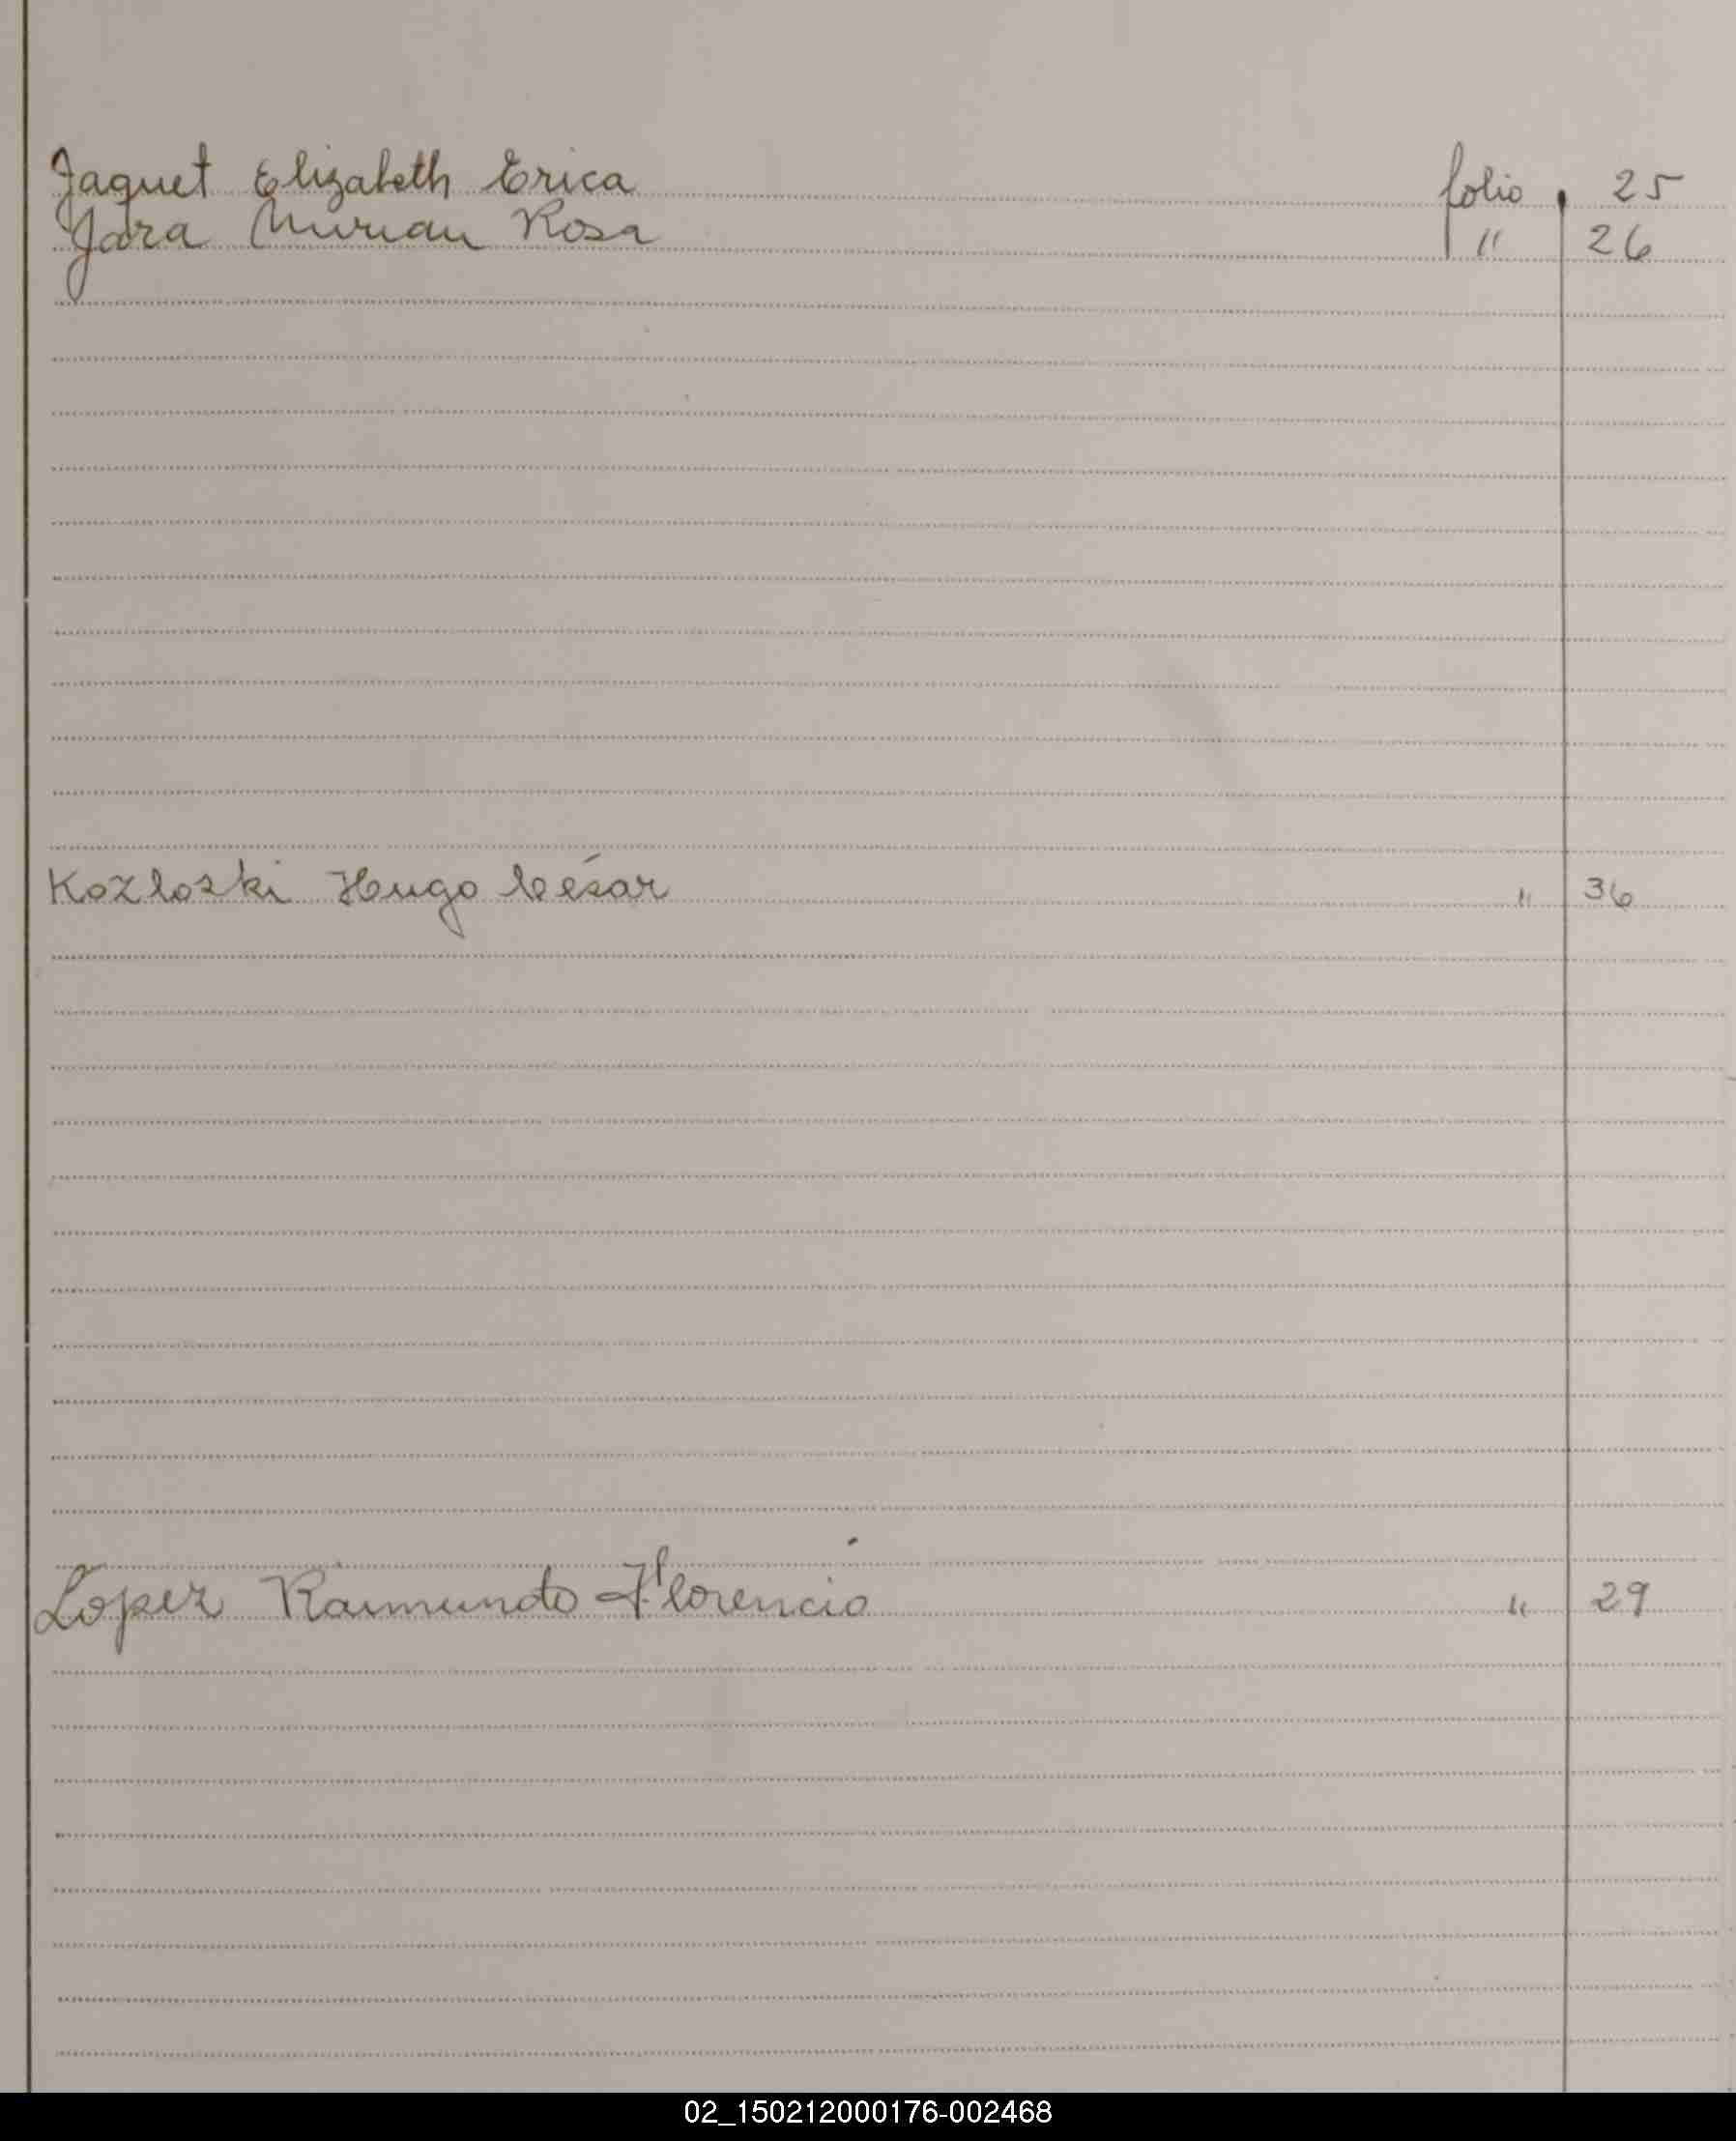 Jaquet Elizabeth Erica folio 25
Jara Mirian Rosa " 26
Kozloski Hugo César " 36
Lopez Raimundo Florencio " 29
02_150212000176-002468